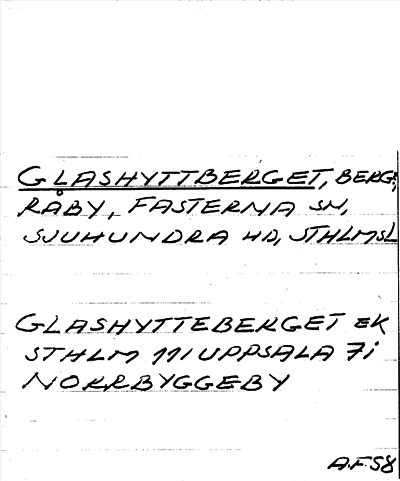 GLASHYTTBERGET, BERG,
RÅBY, FASTERNA SN,
SJUHUNDRA HD, STHLMSL
GLASHYTTEBERGET EK
STHLM 111 UPPSALA 7i
NORRBYGGEBY
A.F.58